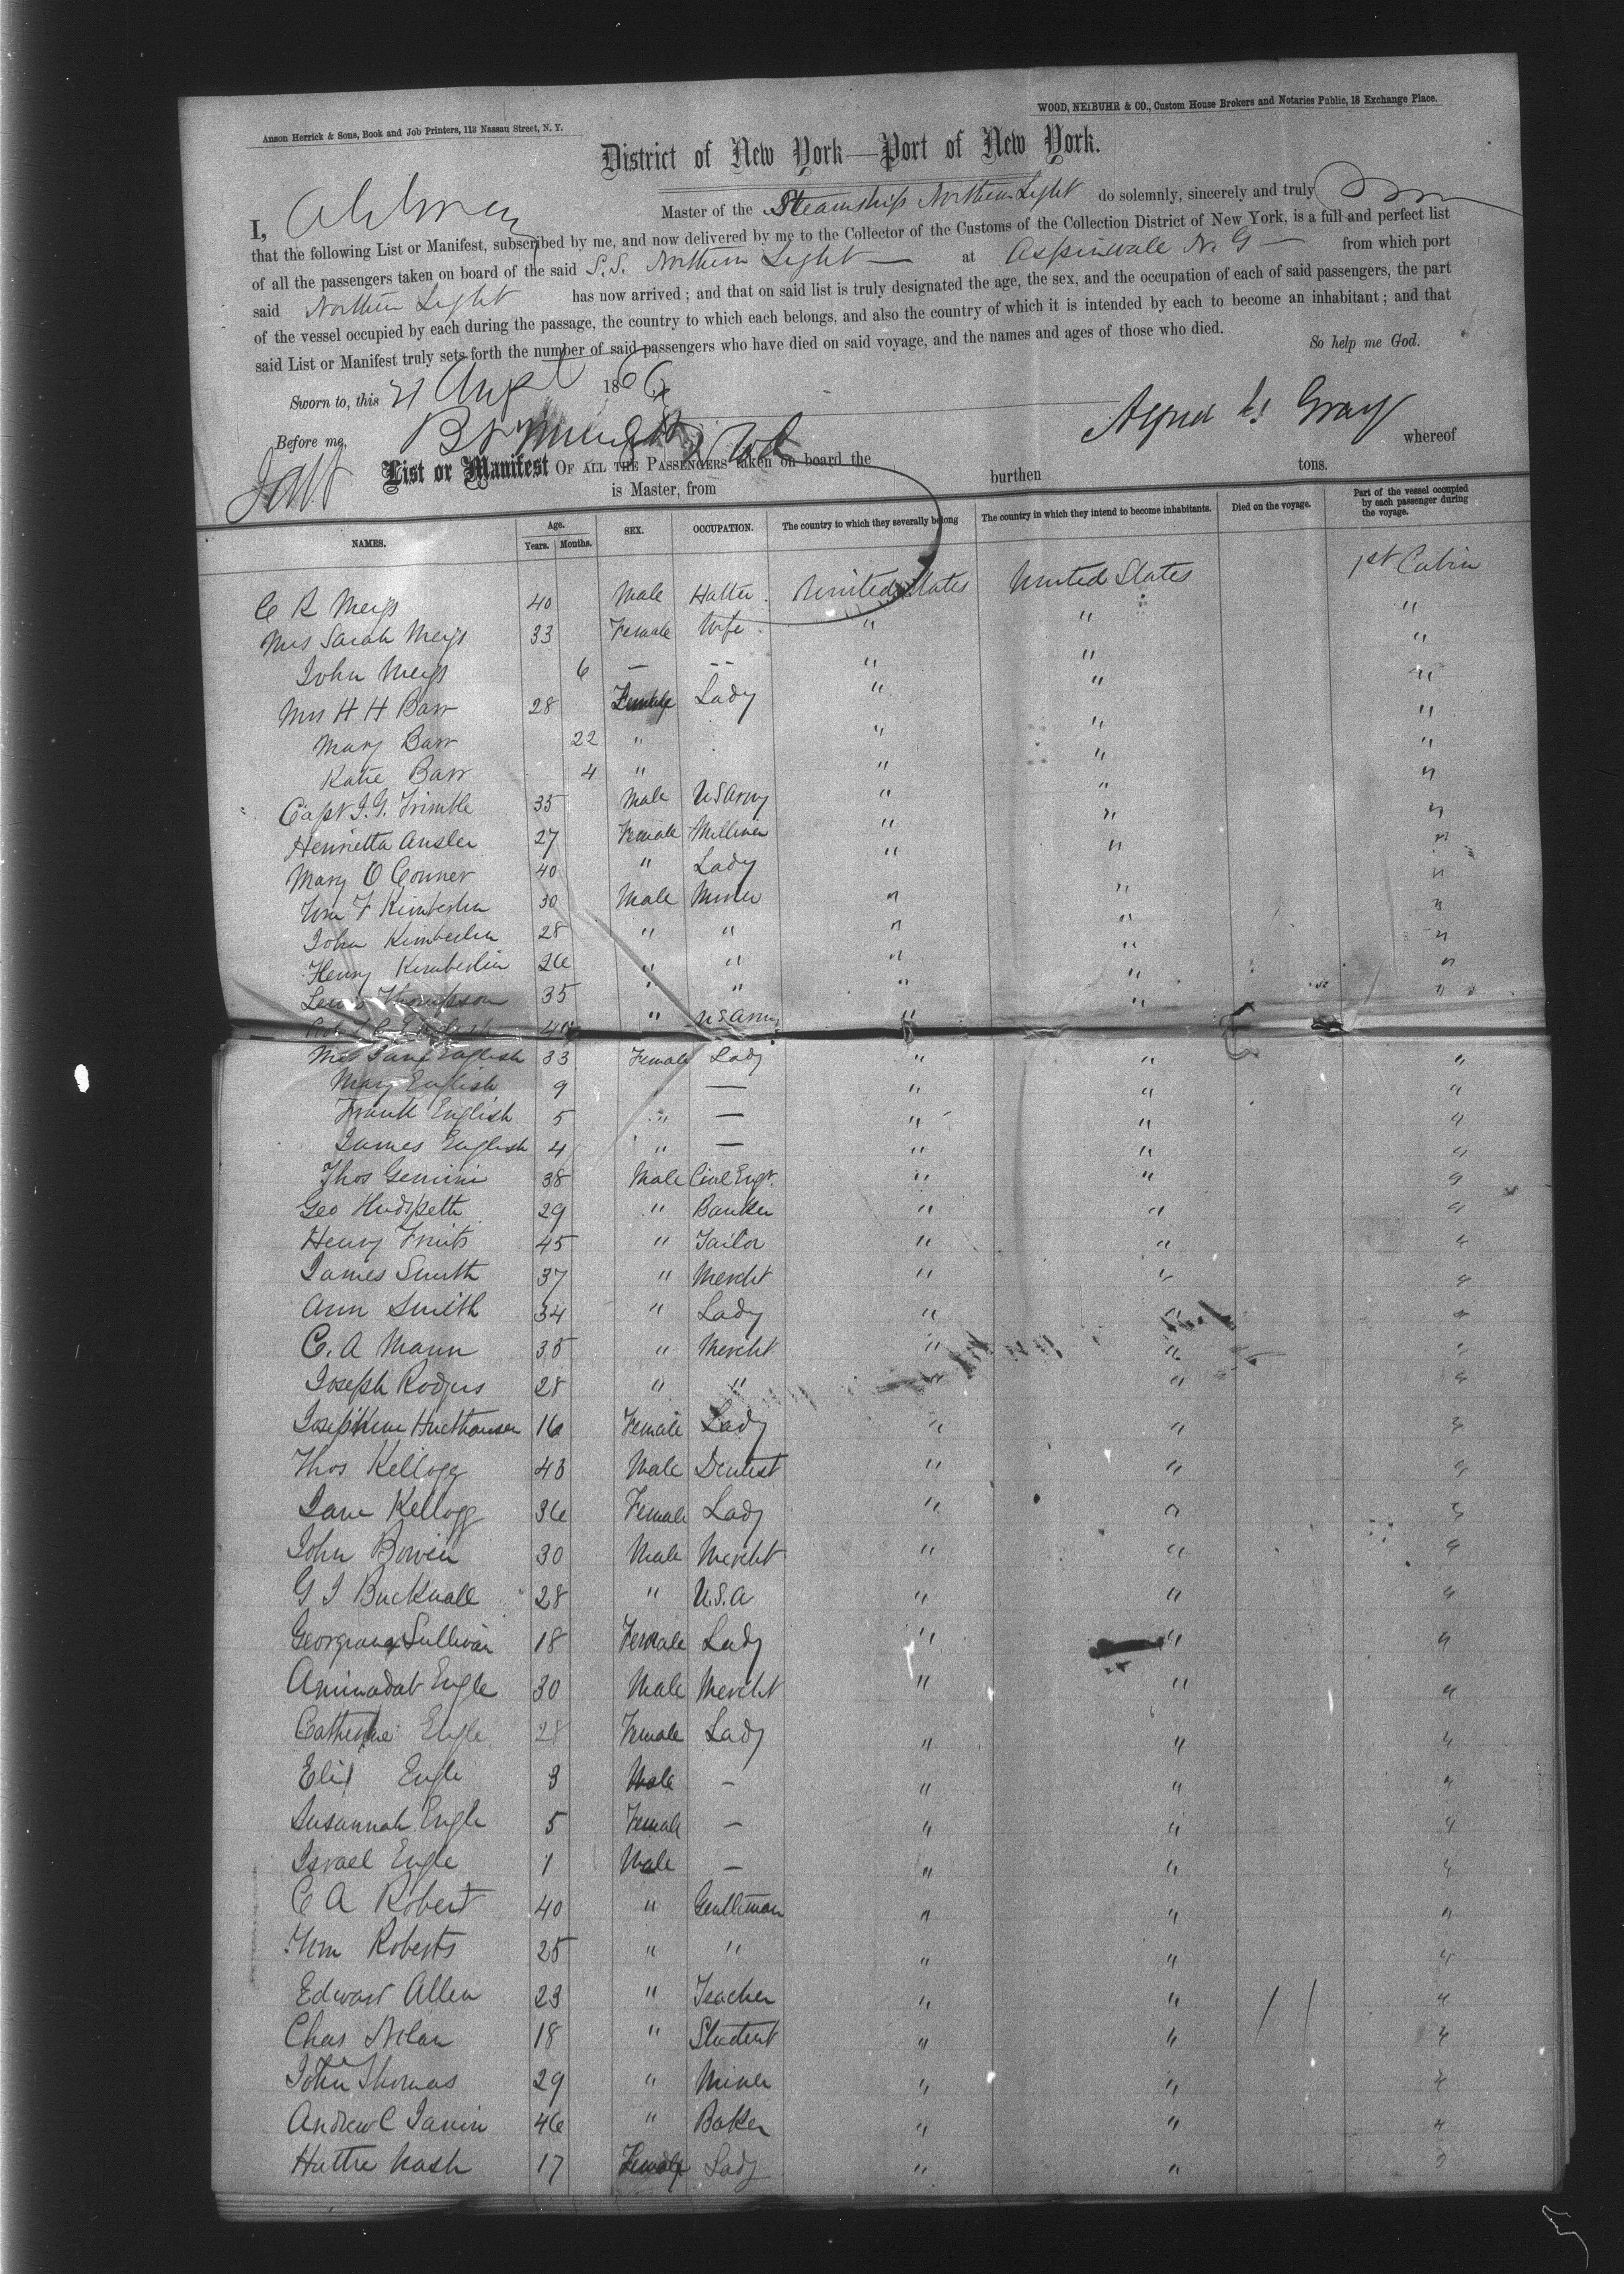 Anson Herrick & Sons, Book and Job Printers, 113 Nassau Street, N. Y.
WOOD, NEIBUHR & CO., Custom House Brokers and Notaries Public, 18 Exchange Place.
District of New York—Port of New York.
I, Master of the Steamship Northern Light do solemnly, sincerely and truly
that the following List or Manifest, subscribed by me, and now delivered by me to the Collector of the Customs of the Collection District of New York, is a full and perfect list
of all the passengers taken on board of the said S.S. Northern Light — at Aspinwall N. G — from which port
said Northern Light has now arrived; and that on said list is truly designated the age, the sex, and the occupation of each of said passengers, the part
of the vessel occupied by each during the passage, the country to which each belongs, and also the country of which it is intended by each to become an inhabitant; and that
said List or Manifest truly sets forth the number of said passengers who have died on said voyage, and the names and ages of those who died.
So help me God.
Sworn to, this 21 Augt 1866
Before me, Gray
List or Manifest OF ALL THE PASSENGERS taken on board the whereof
is Master, from burthen tons.
NAMES. Age. Years. Months. SEX. OCCUPATION. The country to which they severally belong The country in which they intend to become inhabitants. Died on the voyage. Part of the vessel occupied by each passenger during the voyage.
C R Meigs 40 Male Hatter United States United States 1st Cabin
Mrs Sarah Meigs 33 Female Wife " " "
John Meigs 6 — -- " " "
Mrs H H Barr 28 Female Lady " " "
Mary Barr 22 " " " "
Katie Barr 4 " " " "
Capt J. G. Trimble 35 Male U S Army " " "
Henrietta Ansler 27 Female Milliner " " "
Mary O Conner 40 " Lady " " "
Wm F Kimberlin 30 Male Miner " " "
John Kimberlin 28 " " " " "
Henry Kimberlin 26 " " " " "
Lewis Thompson 35 " " " " "
English " U S Army "
Mrs Jane English 33 Female Lady " " "
Mary English 9 — " " "
Frank English 5 " — " " "
James English 4 " — " " "
Thos Gemini 38 Male Civil Engr. " " "
Geo Hudspeth 29 " Banker " " "
Henry Fruits 45 " Tailor " " "
James Smith 37 " Mercht " " "
Ann Smith 34 " Lady " " "
C. A Mann 35 " Mercht " " "
Joseph Rodgers 28 " " " " "
Josephine 16 Female Lady " " "
Thos Kellogg 43 Male Dentist " " "
Jane Kellogg 36 Female Lady " " "
John Bowen 30 Male Mercht " " "
G J Bucknall 28 " U.S.A " " "
Georgiana Sullivan 18 Female Lady " " "
Aminadab Engle 30 Male Mercht " " "
Catherine Engle 28 Female Lady " " "
Eli Engle 3 Male — " " "
Susannah Engle 5 Female — " " "
Israel Engle 1 Male — " " "
C A Robert 40 " Gentleman " " "
Wm Roberts 25 " " " " "
Edward Allen 23 " Teacher " " "
Chas Nolan 18 " Student " " "
John Thomas 29 " Miner " " "
Andrew C Janin 46 " Baker " " "
Hattie Nash 17 Female Lady " " "